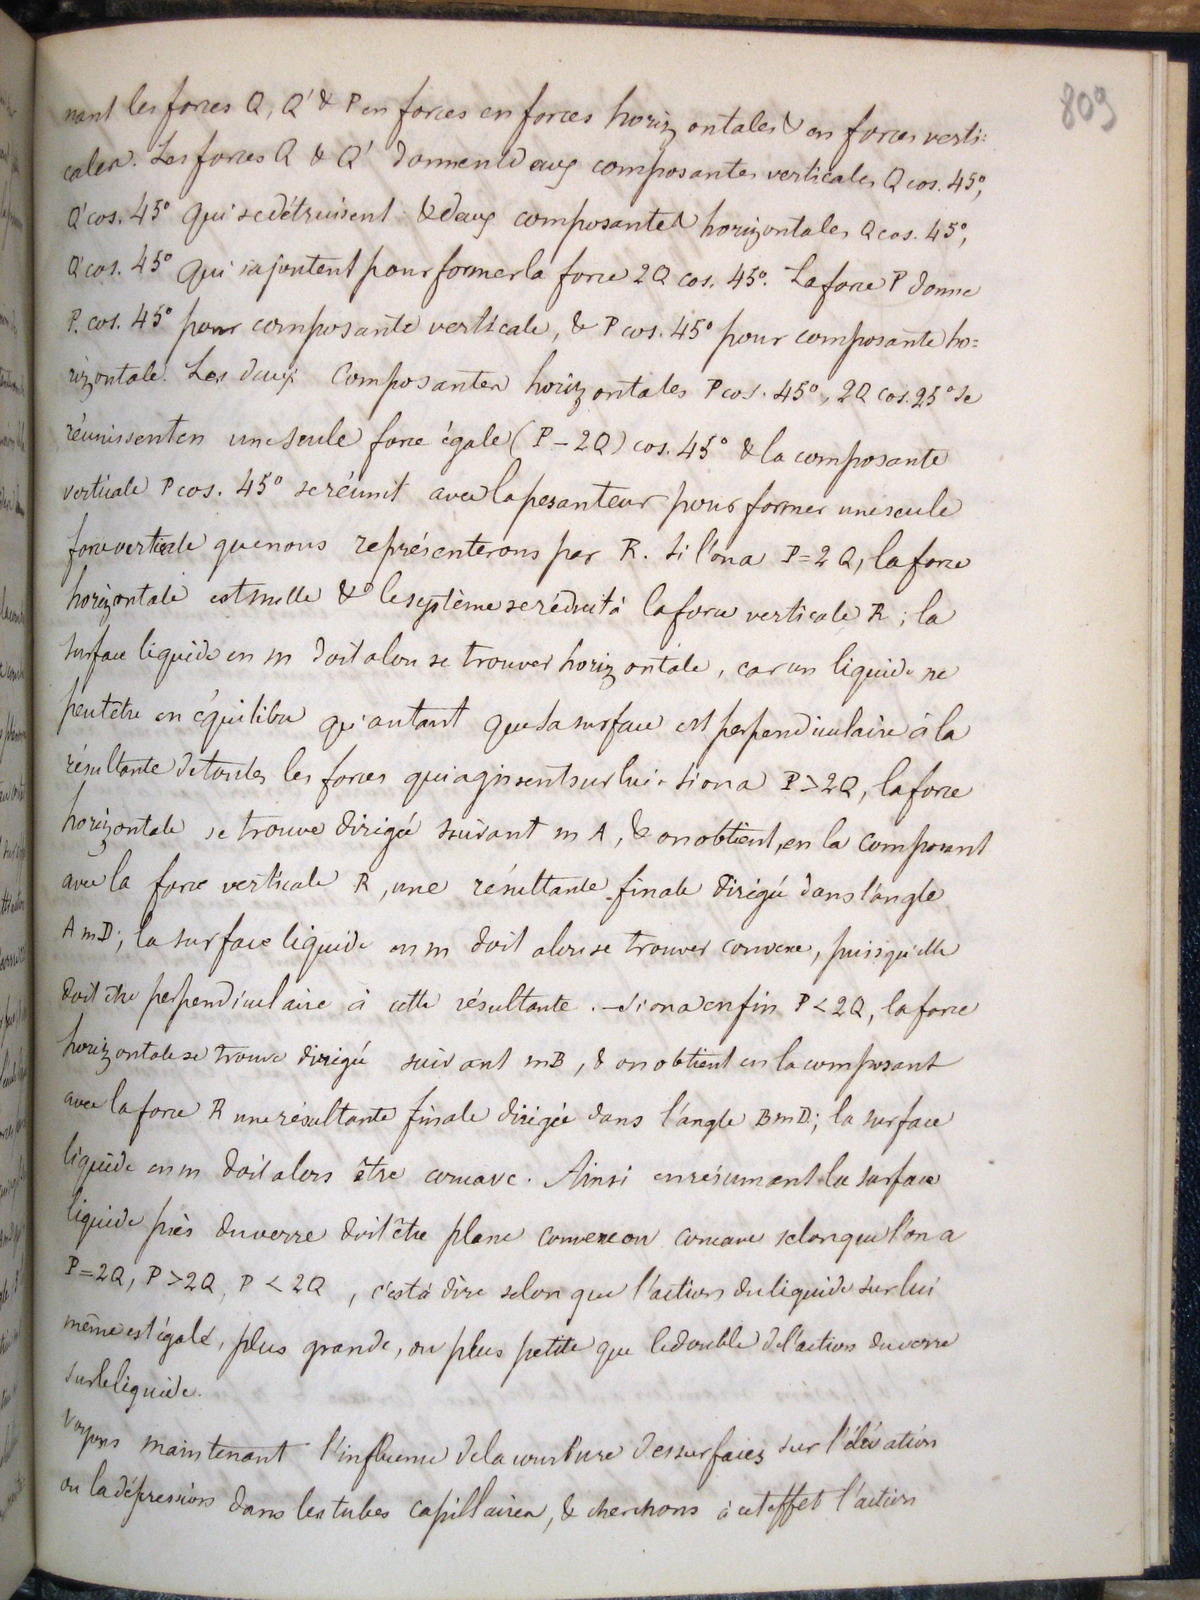 809
nant les forces Q, Q' & P en forces en forces horizontales & en forces verti=
cales. Les forces Q & Q' donnent deux composantes verticales Q cos. 45°,
Q' cos. 45° qui se détruisent & deux composantes horizontales Q cos. 45°,
Q' cos. 45° qui s'ajoutent pour former la force 2Q cos. 45°. La force P donne
P. cos. 45° pour composante verticale, & P cos. 45° pour composante ho=
rizontale. Les deux composantes horizontales P cos. 45°, 2Q cos. 25° se
réunissent en une seule force égale (P - 2Q) cos. 45° & la composante
verticale P cos. 45° se réunit avec la pesanteur pour former une seule
force verticale que nous représenterons par R. Si l'on a P = 2Q, la force
horizontale est nulle & le système se réduit à la force verticale R ; la
surface liquide en m doit alors se trouver horizontale, car un liquide ne
peut être en équilibre qu'autant que sa surface est perpendiculaire à la
résultante de toutes les forces qui agissent sur lui. Si on a P > 2Q, la force
horizontale se trouve dirigée suivant m A, & on obtient, en la composant
avec la force verticale R, une résultante finale dirigée dans l'angle
A m D ; la surface liquide en m doit alors se trouver convexe, puisqu'elle
doit être perpendiculaire à cette résultante. - Si on a enfin P < 2Q, la force
horizontale se trouve dirigée suivant m B, & on obtient en la composant
avec la force R une résultante finale dirigée dans l'angle B m D ; la surface
liquide en m doit alors être concave. Ainsi en résumant la surface
liquide près du verre doit être plane convexe ou concave selon que l'on a
P = 2Q, P > 2Q, P < 2Q, c'est à dire selon que l'action du liquide sur lui
même est égale, plus grande, ou plus petite que le double de l'action du verre
sur le liquide.
Voyons maintenant l'influence de la courbure des surfaces sur l'élévation
ou la dépression dans les tubes capillaires, & cherchons à cet effet l'action